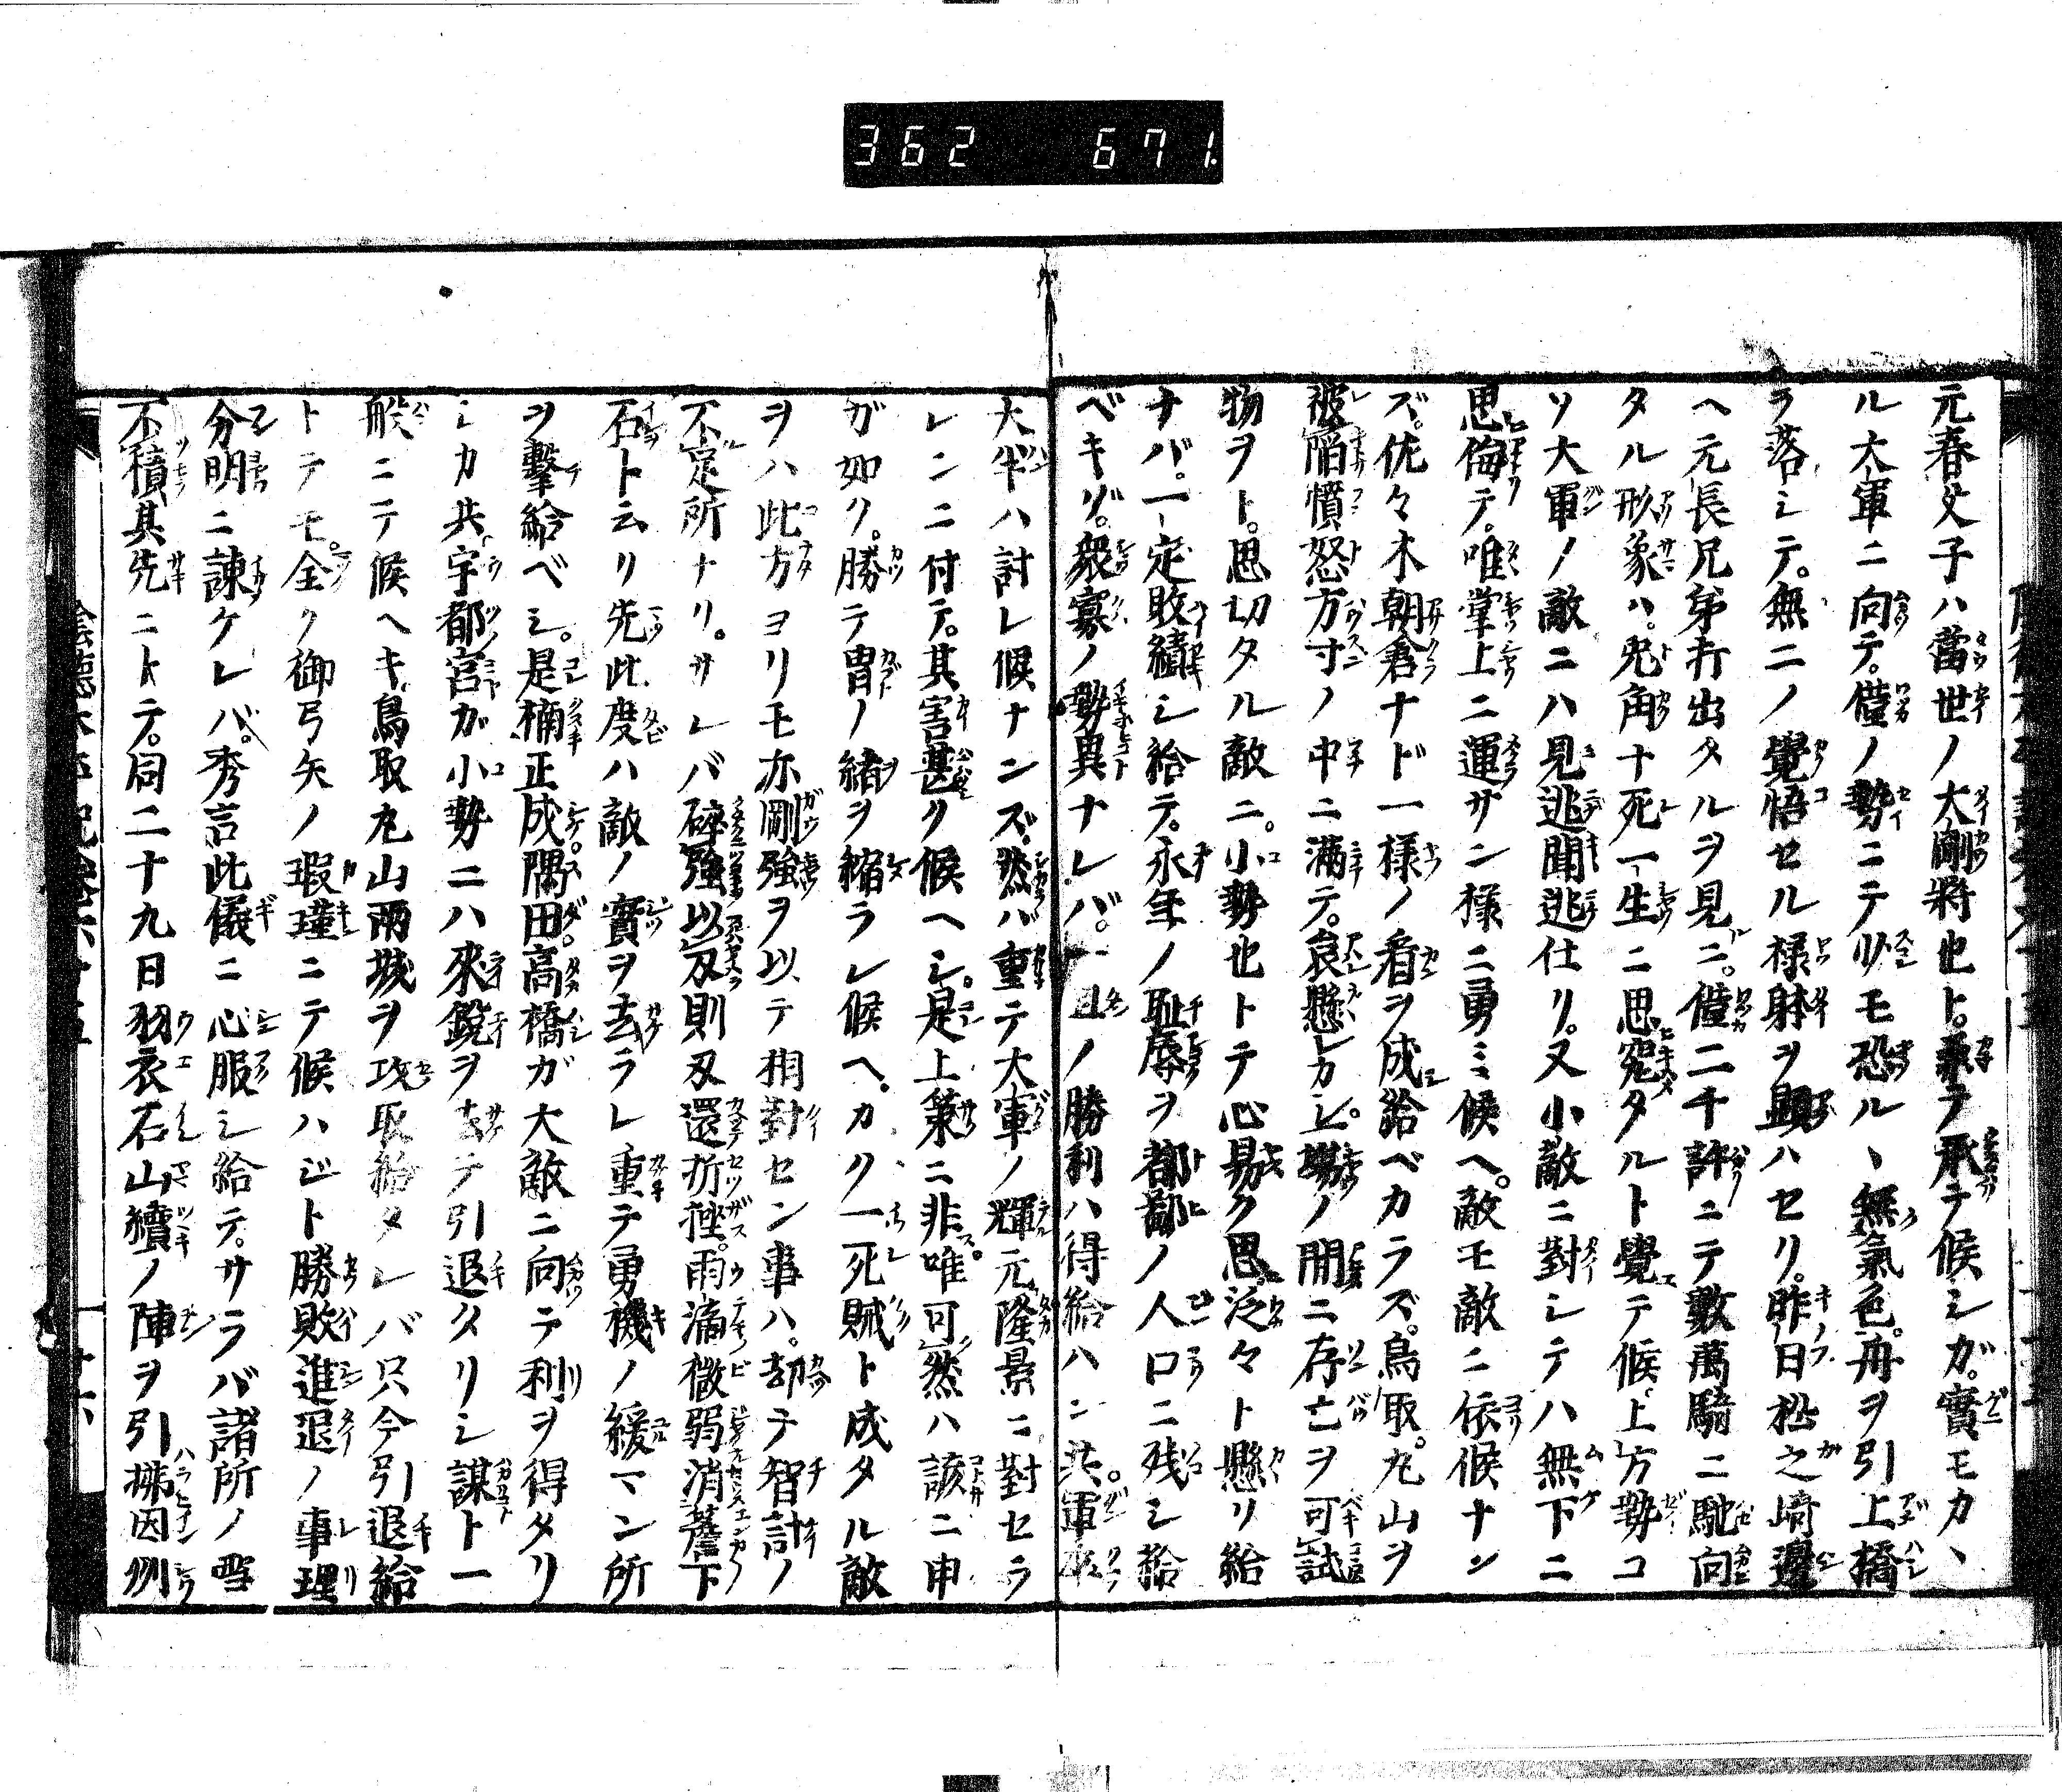 362 671.
元春父子ハ當世ノ大剛將也ト。兼テ承テ候シガ。實モカヽ
ル大軍ニ向テ。僅ノ勢ニテ少モ恐ルヽ無氣色。舟ヲ引上橋
ヲ落シテ。無二ノ覺悟セル様躰ヲ顯ハセリ。昨日松之﨑邊
ヘ元長兄弟打出タルヲ見ニ。僅二千許ニテ數萬騎ニ馳向
タル形象ハ。兎角十死一生ニ思窮タルト覺テ候。上方勢コ
ソ大軍ノ敵ニハ見逃聞逃仕リ。又小敵ニ對シテハ無下ニ
思侮テ。唯掌上ニ運サン様ニ勇ミ候ヘ。敵モ敵ニ依候ナン
ズ。佐々木朝倉ナド一様ノ看ヲ成給ベカラズ。鳥取。丸山ヲ
被陥憤怒方寸ノ中ニ満テ。哀懸レカシ。場ノ開ニ存亡ヲ可試
物ヲト。思切タル敵ニ。小勢也トテ心易ク思。泛々ト懸リ給
ナバ。一定敗績シ給テ。永年ノ耻辱ヲ都鄙ノ人口ニ残シ給
ベキゾ。衆寡ノ勢異ナレバ。一旦ノ勝利ハ得給ハン共。軍
大半ハ討レ候ナンズ。然バ重テ大軍ノ輝元隆景ニ對セラ
レンニ付テ。其害甚ク候ヘシ。是上策ニ非。唯可然ハ諺ニ申
ガ如ク。勝テ冑ノ緒ヲ縮ラレ候ヘ。カク一死賊ト成タル敵
ヲハ此方ヨリモ亦剛強ヲ以テ相對セン事ハ。却テ智計ノ
不定所ナリ。サレバ碎強以刄則刄還折挫。雨滴微弱消簷下
石ト云リ先此度ハ敵ノ實ヲ去ラレ重テ勇機ノ緩マン所
ヲ擊給ベシ。是楠正成。隅田。高橋ガ大敵ニ向テ利ヲ得タリ
シカ共宇都宮ガ小勢ニハ來鋭ヲ去テ引退タリシ謀ト一
般ニテ候ヘキ。鳥取丸山兩城ヲ攻取給タレバ只今引退給
トテモ。全ク御弓矢ノ瑕瑾ニテ候ハジト勝敗進退ノ事理
分明ニ諫ケレバ。秀吉此儀ニ心服シ給テ。サラバ諸所ノ雪
不積其先ニトテ。同二十九日羽衣石山續ノ陣ヲ引拂因州